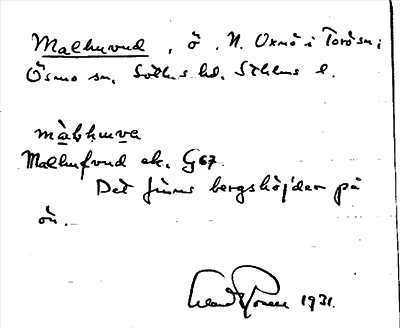 Malhuvud, ö, N. Oxnö i Torö sn;
Ösmo sn, Sotlns hd. Sthlms l.
màbhuva
Malhufvud ek. G67.
Det finns bergshöjder på
ön.
1931.